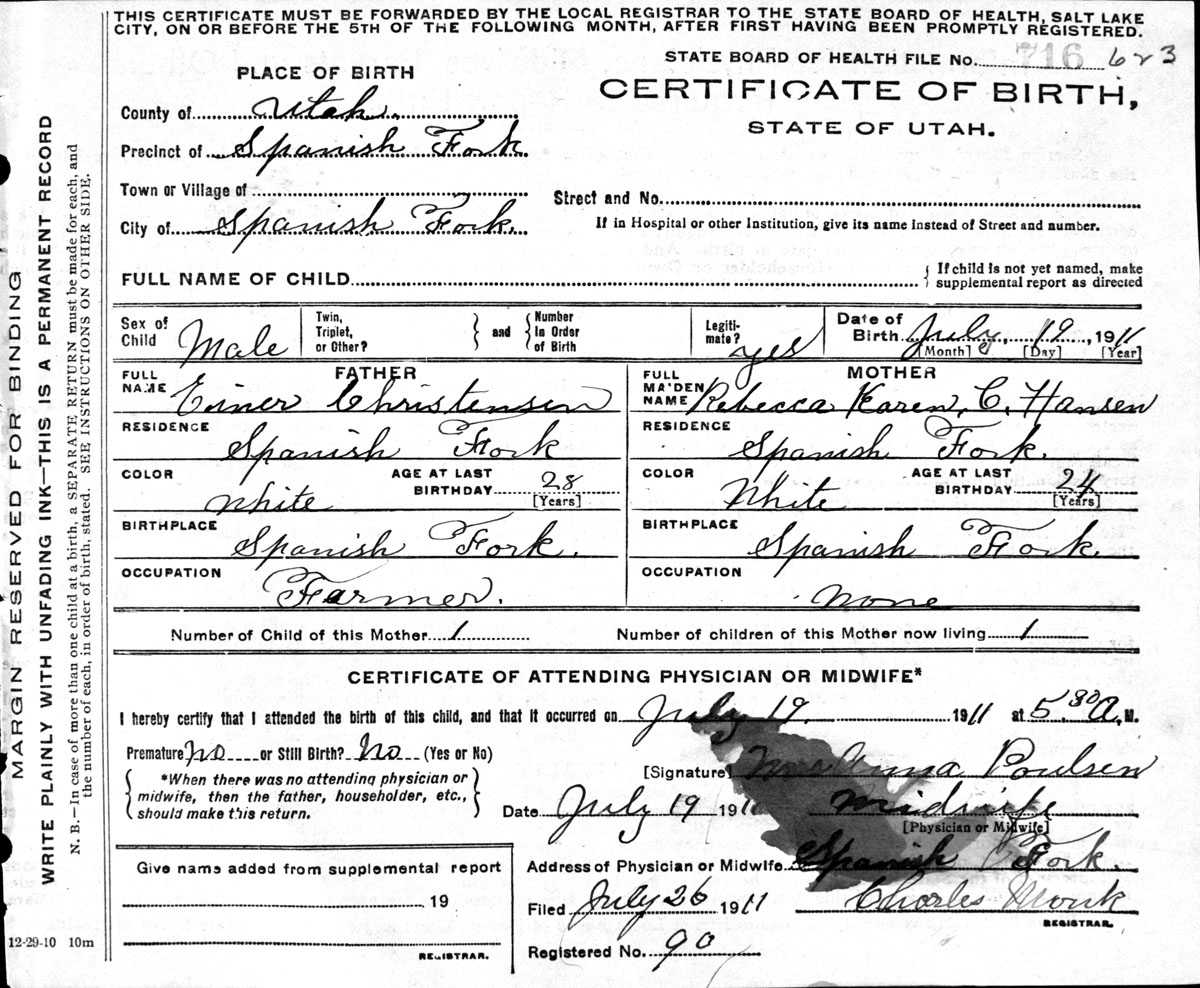 THIS CERTIFICATE MUST BE FORWARDED BY THE LOCAL REGISTRAR TO THE STATE BOARD OF HEALTH, SALT LAKE
CITY, ON OR BEFORE THE 5TH OF THE FOLLOWING MONTH, AFTER FIRST HAVING BEEN PROMPTLY REGISTERED.
STATE BOARD OF HEALTH FILE No. 716 623
PLACE OF BIRTH
CERTIFICATE OF BIRTH,
STATE OF UTAH.
County of Utah.
Precinct of Spanish Fork
Town or Village of
Street and No.
City of Spanish Fork.
If in Hospital or other Institution, give its name Instead of Street and number.
FULL NAME OF CHILD
{ If child is not yet named, make
supplemental report as directed
Sex of Child Male
Twin, Triplet, or Other? } and { Number in Order of Birth
Legiti-mate? yes
Date of Birth July 19 1911
[Month] [Day] [Year]
FATHER
FULL NAME Einer Christensen
MOTHER
FULL MAIDEN NAME Rebecca Karen, C. Hansen
RESIDENCE Spanish Fork
RESIDENCE Spanish Fork.
COLOR White AGE AT LAST BIRTHDAY 28 [Years]
COLOR White AGE AT LAST BIRTHDAY 24 [Years]
BIRTHPLACE Spanish Fork.
BIRTHPLACE Spanish Fork.
OCCUPATION Farmer.
OCCUPATION None
Number of Child of this Mother 1
Number of children of this Mother now living 1
CERTIFICATE OF ATTENDING PHYSICIAN OR MIDWIFE*
I hereby certify that I attended the birth of this child, and that it occurred on July 19. 1911 at 5.30 A. M.
Premature? no or Still Birth? No (Yes or No)
{ *When there was no attending physician or
midwife, then the father, householder, etc.,
should make this return. }
[Signature] Mrs Anna Poulsen
Date July 19 1911 Midwife
[Physician or Midwife]
Address of Physician or Midwife Spanish Fork.
Filed July 26 1911 Charles Monk
REGISTRAR.
Registered No. 90
Give name added from supplemental report
19
REGISTRAR.
12-29-10 10m
MARGIN RESERVED FOR BINDING
WRITE PLAINLY WITH UNFADING INK—THIS IS A PERMANENT RECORD
N. B.—In case of more than one child at a birth, a SEPARATE RETURN must be made for each, and
the number of each, in order of birth, stated. SEE INSTRUCTIONS ON OTHER SIDE.